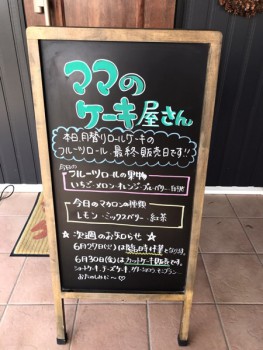 ママの
ケーキ屋さん
本日、月替りロールケーキの
フルーツロール、最終販売日です!!
今日の
フルーツロールの果物
いちご・メロン・オレンジ・ブルーベリー
今日のマカロンの種類
レモン・ミックスベリー・紅茶
☆ 次週のお知らせ ☆
6月29日(土)は臨時休業となります。
6月30日(金)はカットケーキ販売です。
ショートケーキ、チーズケーキ、モンブラン
おたのしみに〜♡